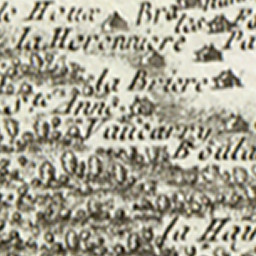 le Houx Bra
les
la Herennière Pa
la Briere
Ste Anne
Vaucarry
Boula
la Hau